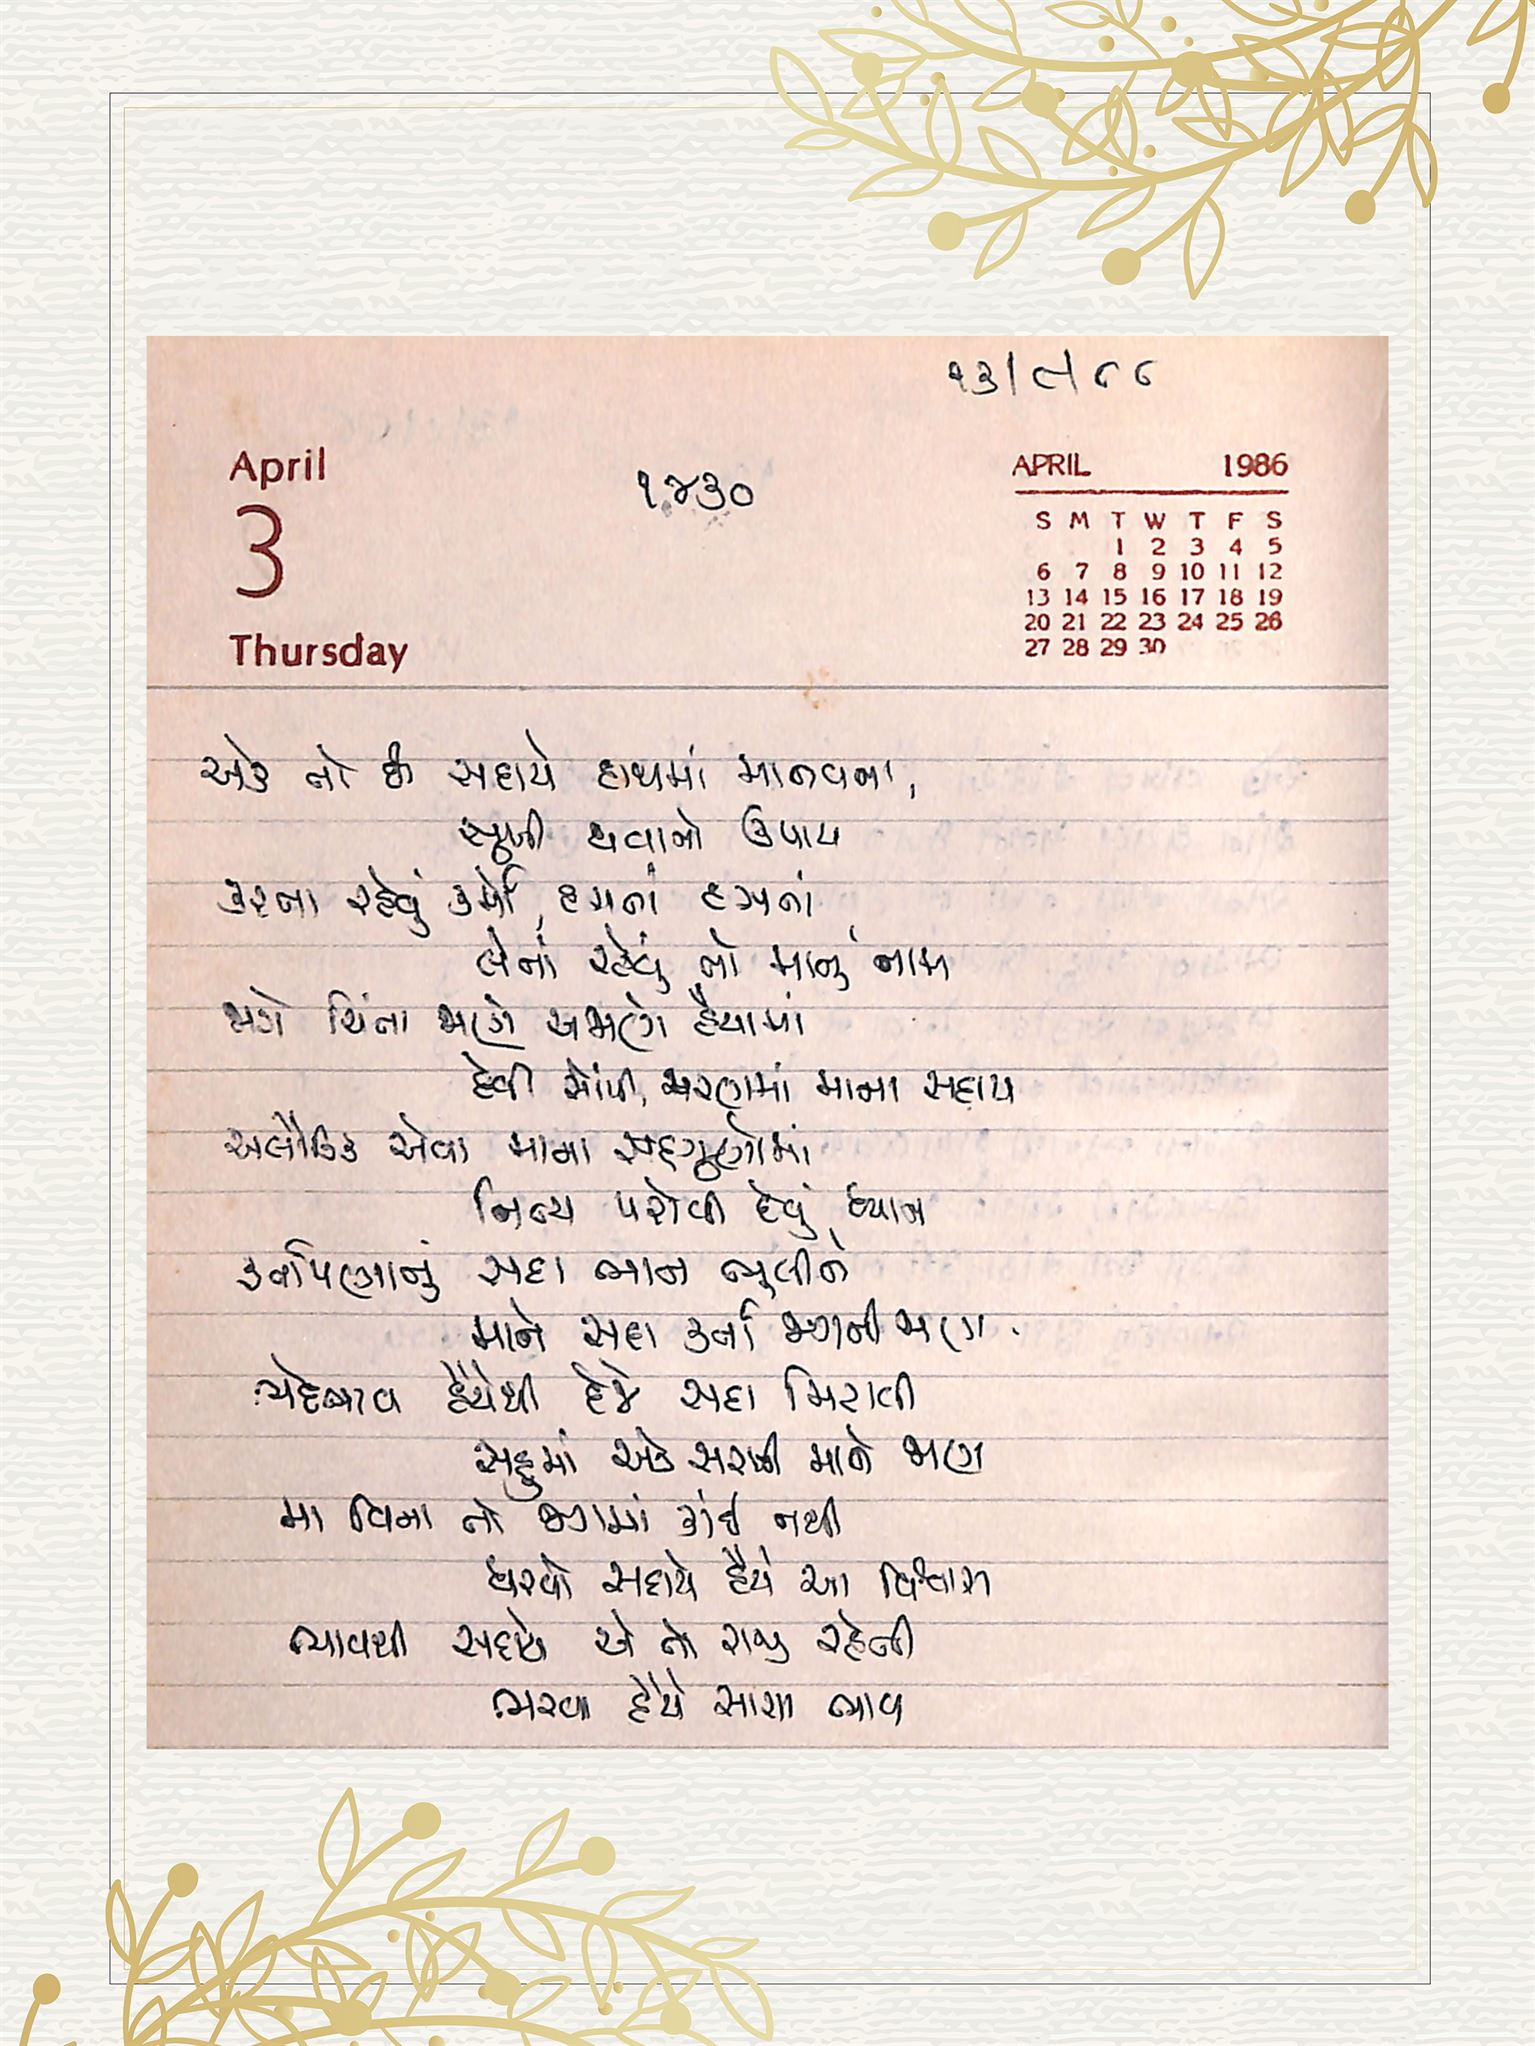 ૧૩/૯/૮૮
April
3
Thursday
૧૪૩૦
APRIL 1986
S M T W T F S
1 2 3 4 5
6 7 8 9 10 11 12
13 14 15 16 17 18 19
20 21 22 23 24 25 26
27 28 29 30
એક તો છે સદાયે હાથમાં માનવના,
સુખી થવાનો ઉપાય
કરતા રહેવું કર્મો, હસતાં હસતાં
લેતાં રહેવું તો માનું નામ
જાગે ચિંતા જાણે અજાણે હૈયામાં
દેવી સોંપી, ચરણમાં માના સદાય
અલૌકિક એવા માના સદ્દગુણોમાં
નિત્ય પરોવી દેવું ધ્યાન
કર્તાપણાનું સદા ભાન ભૂલીને
માને સદા કર્તા જગની જાણ.
ભેદભાવ હૈયેથી દેજે સદા મિટાવી
સહુમાં એક સરખી માને જાણ
મા વિના તો જગમાં કાંઈ નથી
ધરવો સદાયે હૈયે આ વિશ્વાસ
ભાવથી સદાયે એ તો રાજી રહેતી
ભરવા હૈયે સાચા ભાવ